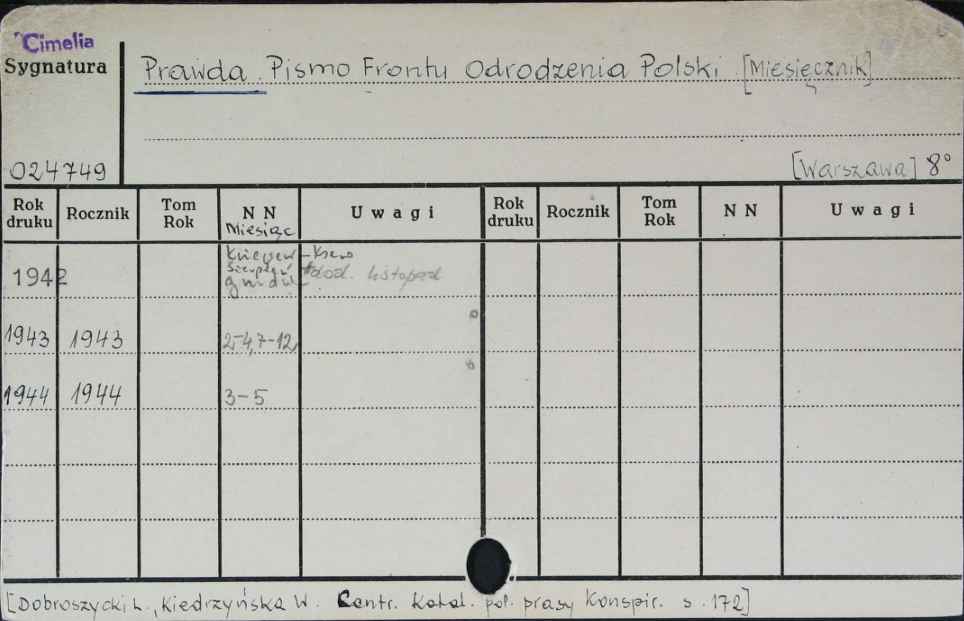 Cimelia
Sygnatura
Prawda. Pismo Frontu Odrodzenia Polski [Miesięcznik]
024749
[Warszawa] 8°
Rok druku Rocznik Tom Rok N N Miesiąc Uwagi Rok druku Rocznik Tom Rok N N Uwagi
1942 sierpień grudzień dod. listopad
1943 1943 2-4, 7-12,
1944 1944 3-5
[Dobroszycki L., Kiedrzyńska W. Centr. Katal. pol. prasy Konspir. s. 172]